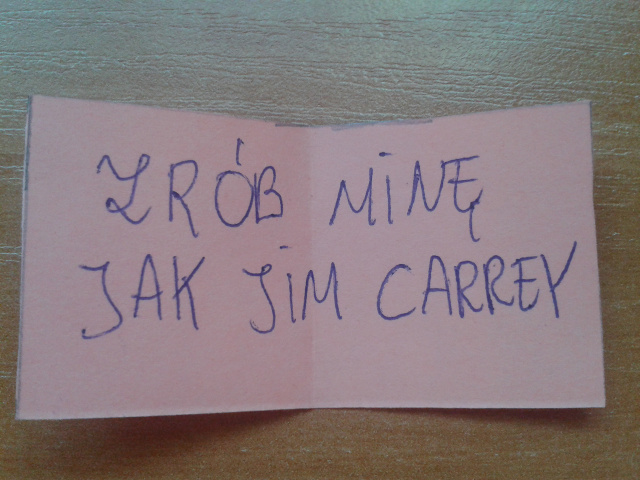 ZRÓB MINĘ
JAK JIM CARREY